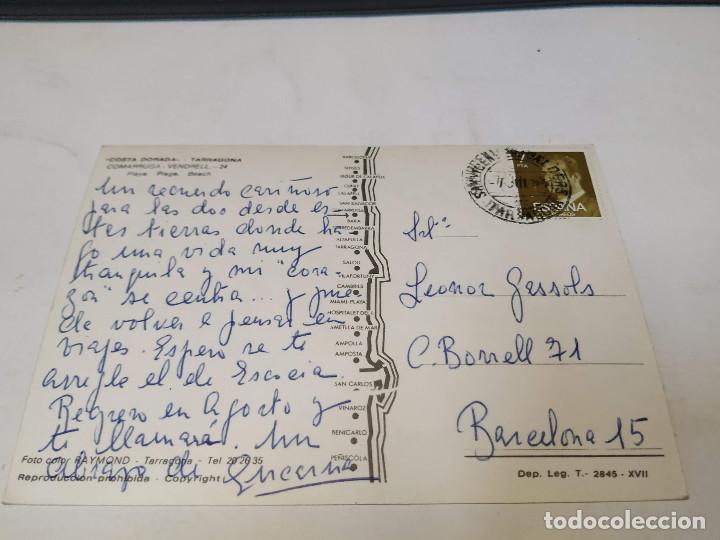 "COSTA DORADA" - TARRAGONA
COMARRUGA - VENDRELL. - 24
Playa Plage Beach
Un recuerdo cariñoso
para las dos desde es-
tas tierras donde ha-
go una vida muy
tranquila y mi "cora-
zón" se centra... y pue-
de volver a pensar en
viajes. Espero se te
arregle el de Escocia.
Regreso en Agosto y
te llamaré. Un
abrazo de Encarna
Foto color RAYMOND - Tarragona - Tel 20 26 35
Reproducción prohibida - Copyright
BARCELONA
SITGES
CUNIT
CALAFELL
SAN SALVADOR
BARA
TORREDEMBARRA
ALTAFULLA
TARRAGONA
SALOU
VILAFORTUNY
CAMBRILS
MIAMI-PLAYA
HOSPITALET DEL I.
AMETLLA DE MAR
AMPOLLA
AMPOSTA
SAN CARLOS
VINAROZ
BENICARLO
PEÑISCOLA
ESPAÑA
Srtª
Leonor Gassols
C. Borrell 71
Barcelona 15
Dep. Leg. T. - 2845 - XVII
todocoleccion
todocoleccion.net